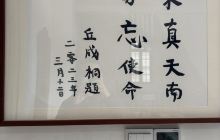 真天南
忘使命
丘成桐題
二〇二三年
三月十二日